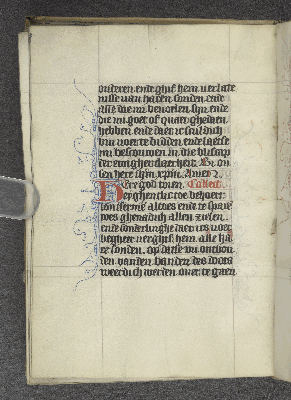 onderen. ende ghif hem verlate
nisse van haren sonden. ende
alle die mi bevolen sijn. ende
die mi goet of quaet gheden
hebben. ende daer ic sculdich
bin voer te bidden. ende laet se
mi bescouwen in die blijscap
der ewigher claerheit. Bi on
sen here ihm xpm. Amen
Here god wien Collect.
berghen si toe behoert
ontfermen altoes ende te sparen
wes ghenadich allen zielen
ende sonderlinghe dier wi voer
begheer verghif hem alle ha
re sonden. op dat se vn ontbon
den vanden banden des doots
weerdich werden over te gaen